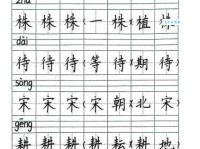 zhū
株株株(一株)植株
dài
待待待(等待)期待
sòng
宋宋宋(宋朝)北宋
gēng
耕耕耕(耕耘)耕地